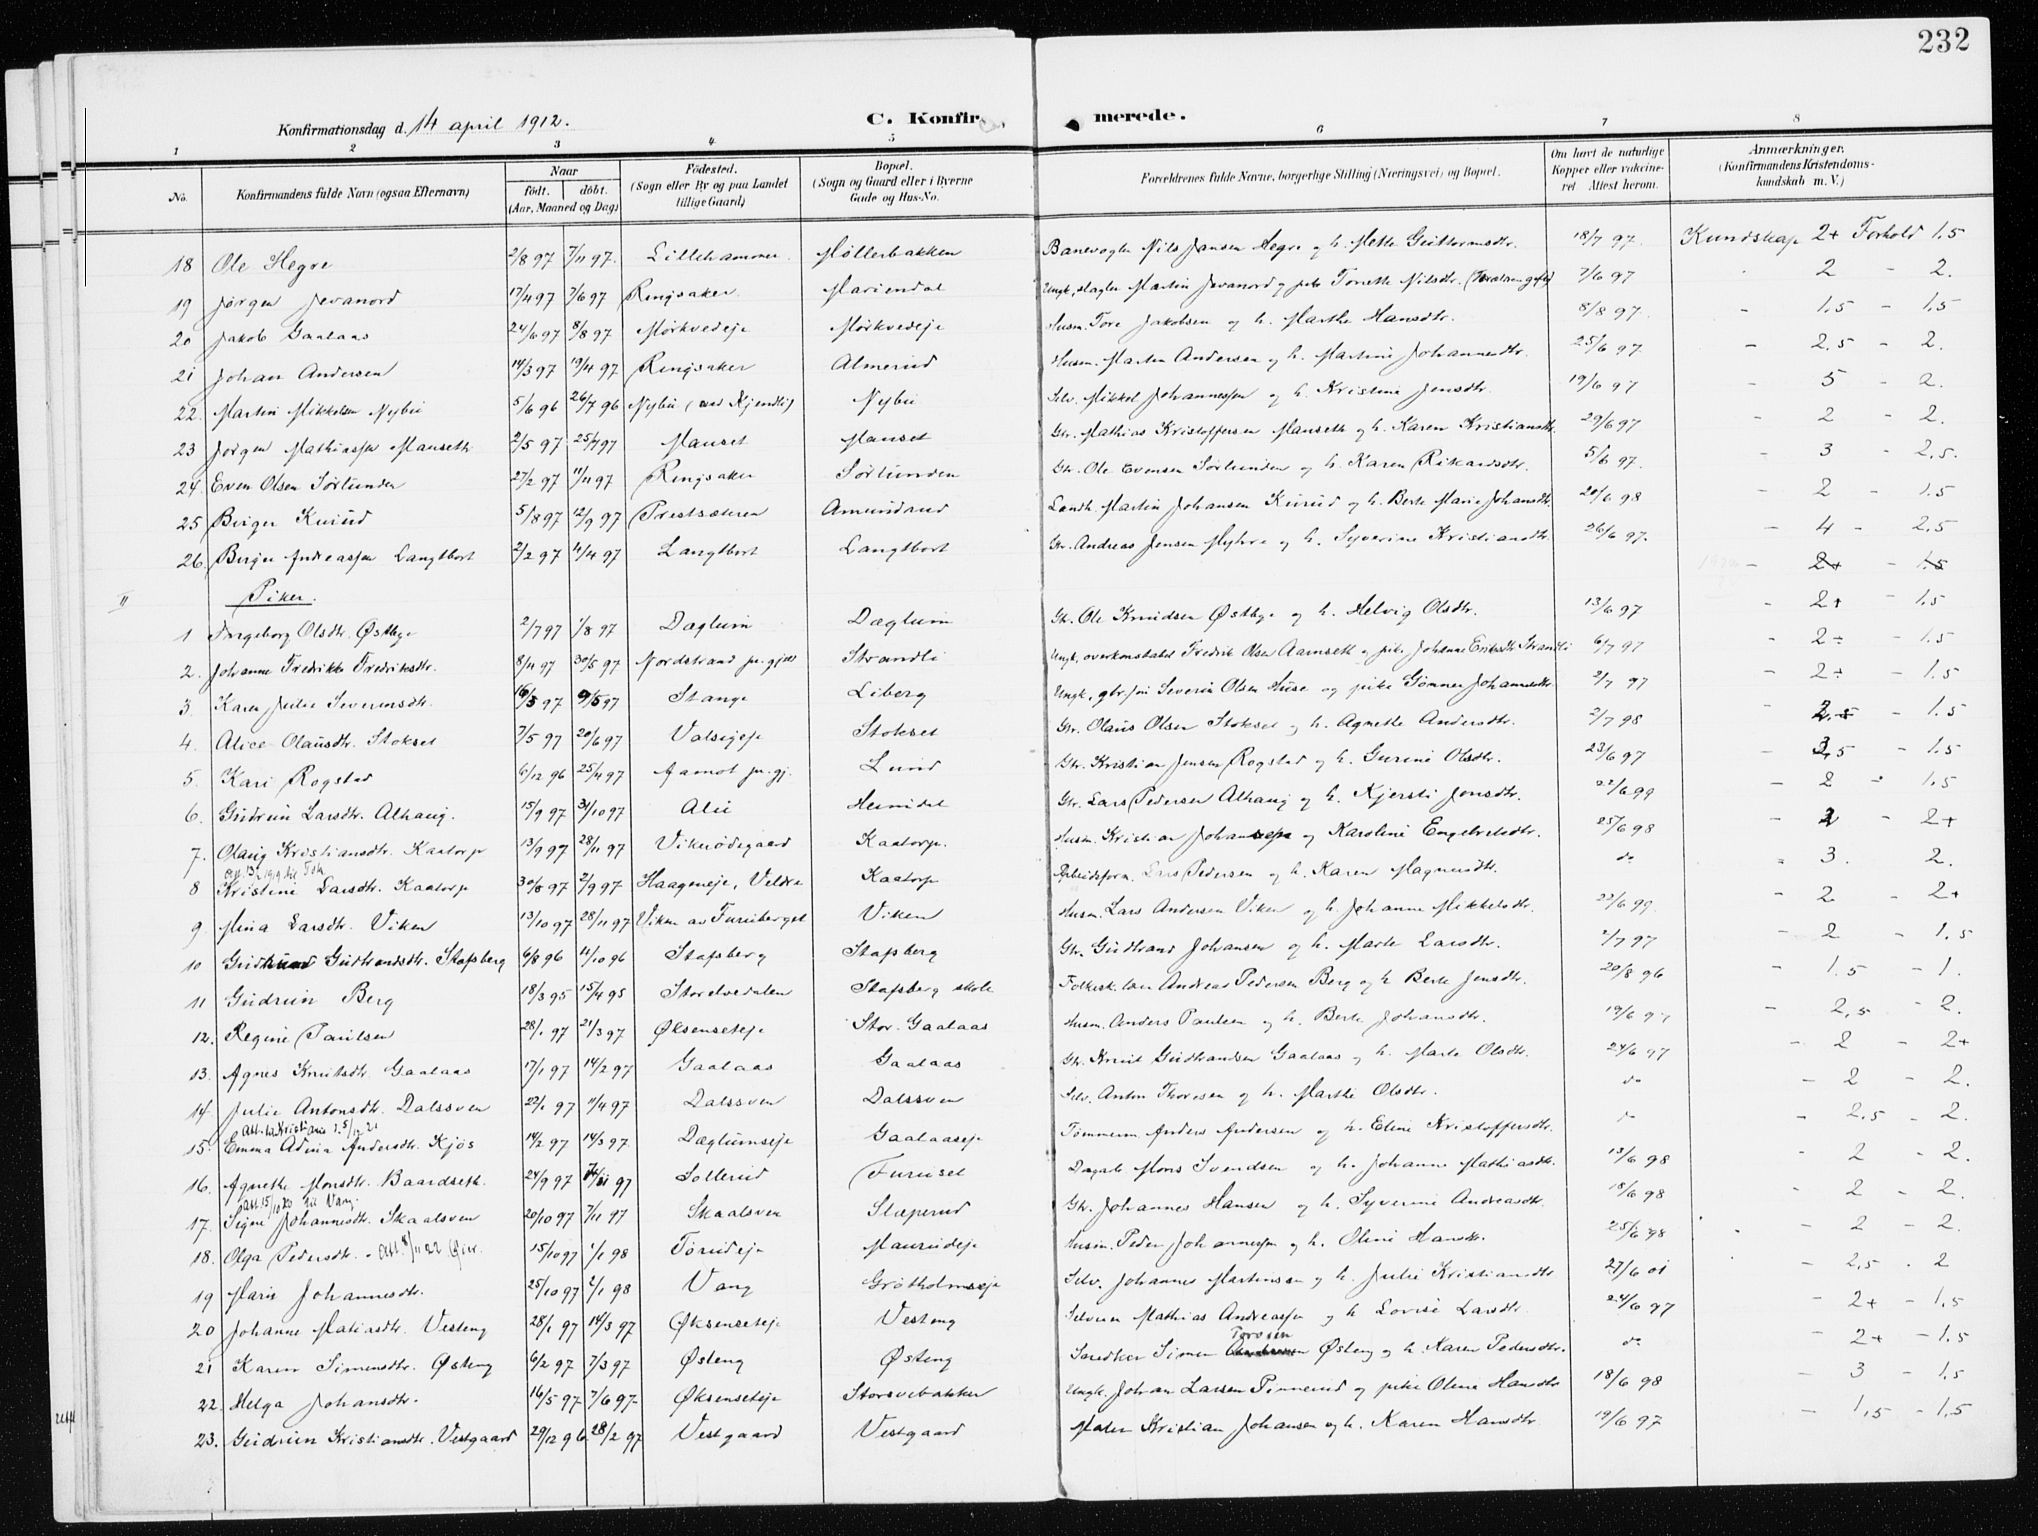 232
Konfirmationsdag d. 14 april 1912.
C. Konfir
merede.
1 2 3 4 5 6 7 8
No. Konfirmandens fulde Navn (ogsaa Efternavn) Naar født. døbt. (Aar, Maaned og Dag) Fødested. (Sogn eller By og paa Landet tillige Gaard) Bopæl. (Sogn og Gaard eller i Byerne Gade og Hus-No. Forældrenes fulde Navne, borgerlige Stilling (Næringsvei) og Bopæl. Om havt de naturlige Kopper eller vakcineret Attest herom. Anmærkninger. (Konfirmandens Kristendomskundskab m. V.)
18 Ole Hegre 2/8 97 7/11 97. Lillehammer. Møllerbakken Banevogter Nils Jansen Hegre og h. Mette Guttormsdtr. 18/7 97 Kundskap 2+ Forhold 1.5
19 Jørgen Jevanord 17/4 97 7/6 97 Ringsaker. Mariendal Ungk. slagter Martin Jevanord og pike Torette Nilsdtr. 7/6 97 2 - 2.
20 Jakob Gaalaas 24/6 97 8/8 97 Mørkvedeje Mørkvedeje Husm. Tore Jakobsen og h. Marthe Hansdtr. 8/8 97. - 1.5 - 1.5
21 Johan Andersen 14/3 97 19/4 97 Ringsaker Almerud Husm. Martin Andersen og h. Martine Johannesdtr. 25/6 97 - 2.5 - 2.
22. Martin Mikkelsen Nybu 5/6 96 26/7 96 Nybu (ved Kjendli) Nybu Selv. Mikkel Johannessen og h. Kristine Jensdtr. 19/6 97 - 5 - 2.
23 Jørgen Mathiassen Manseth 2/5 97 25/7 97 Manset Manset Gbr. Mathias Kristoffersen Manseth og h. Karen Kristiansdtr. 29/6 97 - 2 - 2.
24. Even Olsen Sørlunden 27/2 97 11/11 97 Ringsaker Sørlunden Gbr. Ole Evensen Sørlunden og h. Karen Rikardsdtr. 5/6 97. - 3 - 2.5.
25 Birger Kurud 5/8 97 12/9 97 Prestsæteren Amundrud Landh. Martin Johansen Kurud og h. Berte Marie Johansdtr. 20/6 98 - 2 - 1.5
26. Birger Andreassen Langtbort 2/2 97 11/4 97 Langtbort Langtbort Gbr. Andreas Jensen Myhre og h. Syverine Kristiansdtr. 26/6 97. - 4 - 2.5
- 2+ - 1.5
II Piker.
1 Ingeborg Olsdtr. Østbye 2/7 97 1/8 97 Dæglum Dæglum Gbr. Ole Knudsen Østbye og h. Helvig Olsdtr. 13/6 97 - 2+ - 1.5
2. Johanne Fredrikke Fredriksdtr. 8/4 97 30/5 97 Nordstrand pr. gjeld Strandli Ungk. overkonstabel Fredrik Olsen Aamseth og pike Johanne Eriksdtr. Strandli 6/7 97 - 2÷ - 1.5
3. Karen Julie Severinsdtr. 16/3 97 9/5 97 Stange Liberg Ungk, gbr. søn Severin Olsen Huse og pike Gønner Johannesdtr. 2/7 97 - 2÷ - 1.5
4. Alice Olausdtr. Stokset 7/5 97 20/6 97 Valsigeje Stokset Gbr. Olaus Olsen Stokset og h. Agnethe Andersdtr. 2/7 98 - 2.5 - 1.5
5. Kari Rogstad 6/12 96 25/4 97 Aamot pr. gj. Lund Gbr. Kristian Jensen Rogstad og h. Gurine Olsdtr. 23/6 97 - 3.5 - 1.5
6. Gudrun Larsdtr. Alhaug. 15/9 97 31/10 97 Alu Heimdal Gbr. Lars Pedersen Alhaug og h. Kjersti Jonsdtr. 22/6 99 - 2 - 1.5
7. Olaug Kristiansdtr. Kaatorp 13/9 97 28/11 97 Vikrødegaard Kaatorp. Husm. Kristian Johansen og Karoline Engebretsdtr. 25/6 98 - 2 - 2+
8 Kristine Larsdtr. Kaatorp 30/8 97 2/9 97 Haageneje, Veldre Kaatorp Arbeidsform. Lars Pedersen og h. Karen Magnusdtr. do " 3. 2.
9 Mina Larsdtr. Viken 13/10 97 28/11 97 Viken av Furuberget Viken Husm. Lars Andersen Viken og h. Johanne Mikkelsdtr. 22/6 99. - 2 - 2+
10 Gudbrandsdtr. Stafsberg 6/8 96 11/10 96 Stafsberg Stafsberg Gbr. Gudbrand Johansen og h. Marte Larsdtr. 2/7 97 - 2 - 1.5
11 Gudrun Berg 18/3 95 15/4 95 Storelvedalen Stafsberg skole Folkesk. lærer Andreas Pedersen Berg og h Berte Jensdtr. 20/8 96 - 1.5 - 1.
12. Regine Paulsen 28/1 97 21/3 97 Øksenseteje Stor. Gaalaas Husm. Anders Paulsen og h. Berte Johansdtr. 19/6 97 - 2,5 - 2.
13. Agnes Knutsdtr. Gaalaas 17/1 97 14/2 97 Gaalaas Gaalaas Gbr. Knut Gudbrandsen Gaalaas og h. Marte Olsdtr. 24/6 97 - 2 - 2+
14. Julie Antonsdtr. Dalssven 22/1 97 11/4 97 Dalssven Dalssven Selv. Anton Thoresen og h. Marthe Olsdtr. do - 2 - 2.
Att. til Kristiania
15. Emma Adina Andersdtr. Kjøs 14/2 97 14/3 97 Dæglumseje Gaalaaseje Tømmerm. Anders Andersen og h. Eline Kristoffersdtr. do - 2,5 - 2.
16. Agnethe Monsdtr. Baardseth. 24/9 97 Sollerud Furuset Dagarb. Mons Svendsen og h. Johanne Mathiasdtr. 13/6 98 - 2 - 2.
Att. 15/10 20 til Vang.
17. Signe Johannesdtr. Skaalsven 20/10 97 7/11 97 Skaalsven Slæperud Gbr. Johannes Hansen og h. Syverine Andreasdtr. 18/6 98 - 2 - 2.
18. Olga Pedersdtr. - Att. 8/11 22 Øier. 15/10 97 1/1 98 Torudeje Maurudeje Husm. Peder Johannessen og h. Oline Hansdtr. 25/6 98 - 2 - 2.
19 Marie Johannesdtr. 25/10 97 2/1 98 Vang Grøtholmseje Selv. Johannes Martinsen og h. Julie Kristiansdtr 27/6 01 - 2.5 - 2
20 Johanne Matiasdtr. Vesteng 28/1 97 14/3 97 Øksenseteje Vesteng Selveier Mathias Andreassen og h Lovise Larsdtr. 24/6 97 - 2+ - 1.5
Toresen
21 Karen Simensdtr. Østeng 6/2 97 7/3 97 Østeng Østeng Snedker Simen Østeng og h Karen Pedersdtr. do - 2+ - 1.5
22. Helga Johansdtr. 16/5 97 7/6 97. Øksenseteje Storsvebakken Ungk. Johan Larsen Pinnerud og pike Oline Hansdtr 18/6 98 - 3 - 1.5
23. Gudrun Kristiansdtr. Vestgaard 29/12 96 28/2 97 Vestgaard Vestgaard Maler Kristian Johansen og h. Karen Hansdtr. 19/6 97 - 1,5 - 1.5